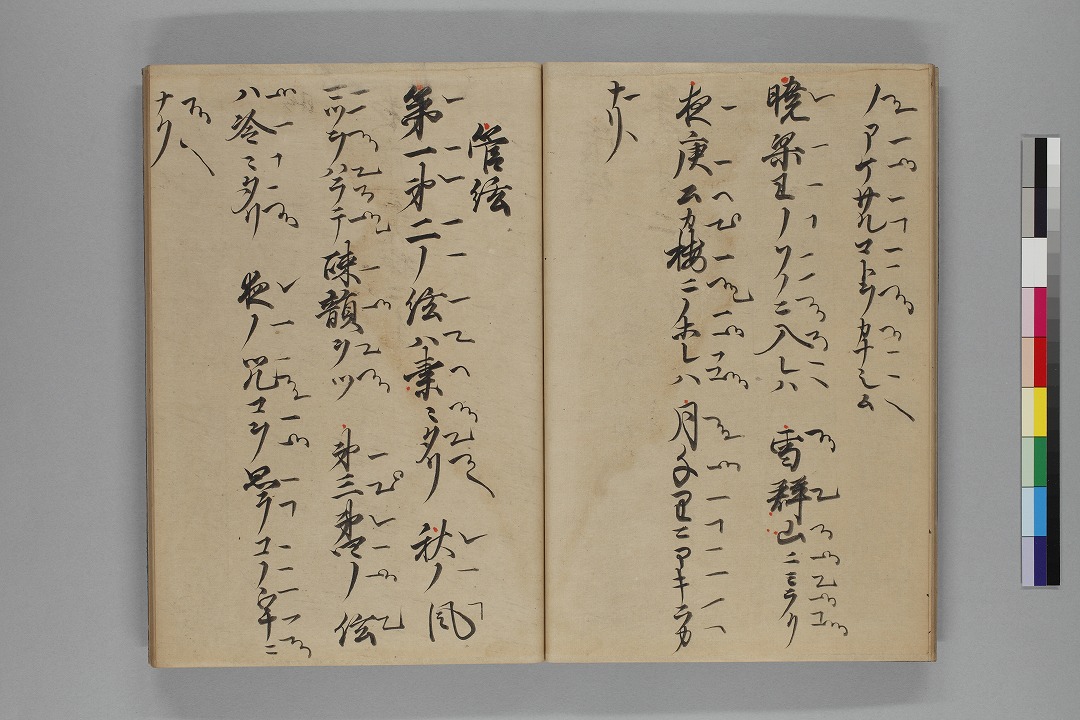 ノアケサルマトヲカナシム
暁梁王ノソノニ入レハ 雪群山ニミテリ
夜庾公カ楼ニノホレハ 月千里ニアキラカ
ナリ
管絃
第一第二ノ絃ハ索ゝタリ 秋ノ風
マツヲハラテ疎韻ヲツ 第三第四ノ絃
ハ冷ゝタリ 夜ノツルコヲ思テコノ中ニ
ナク